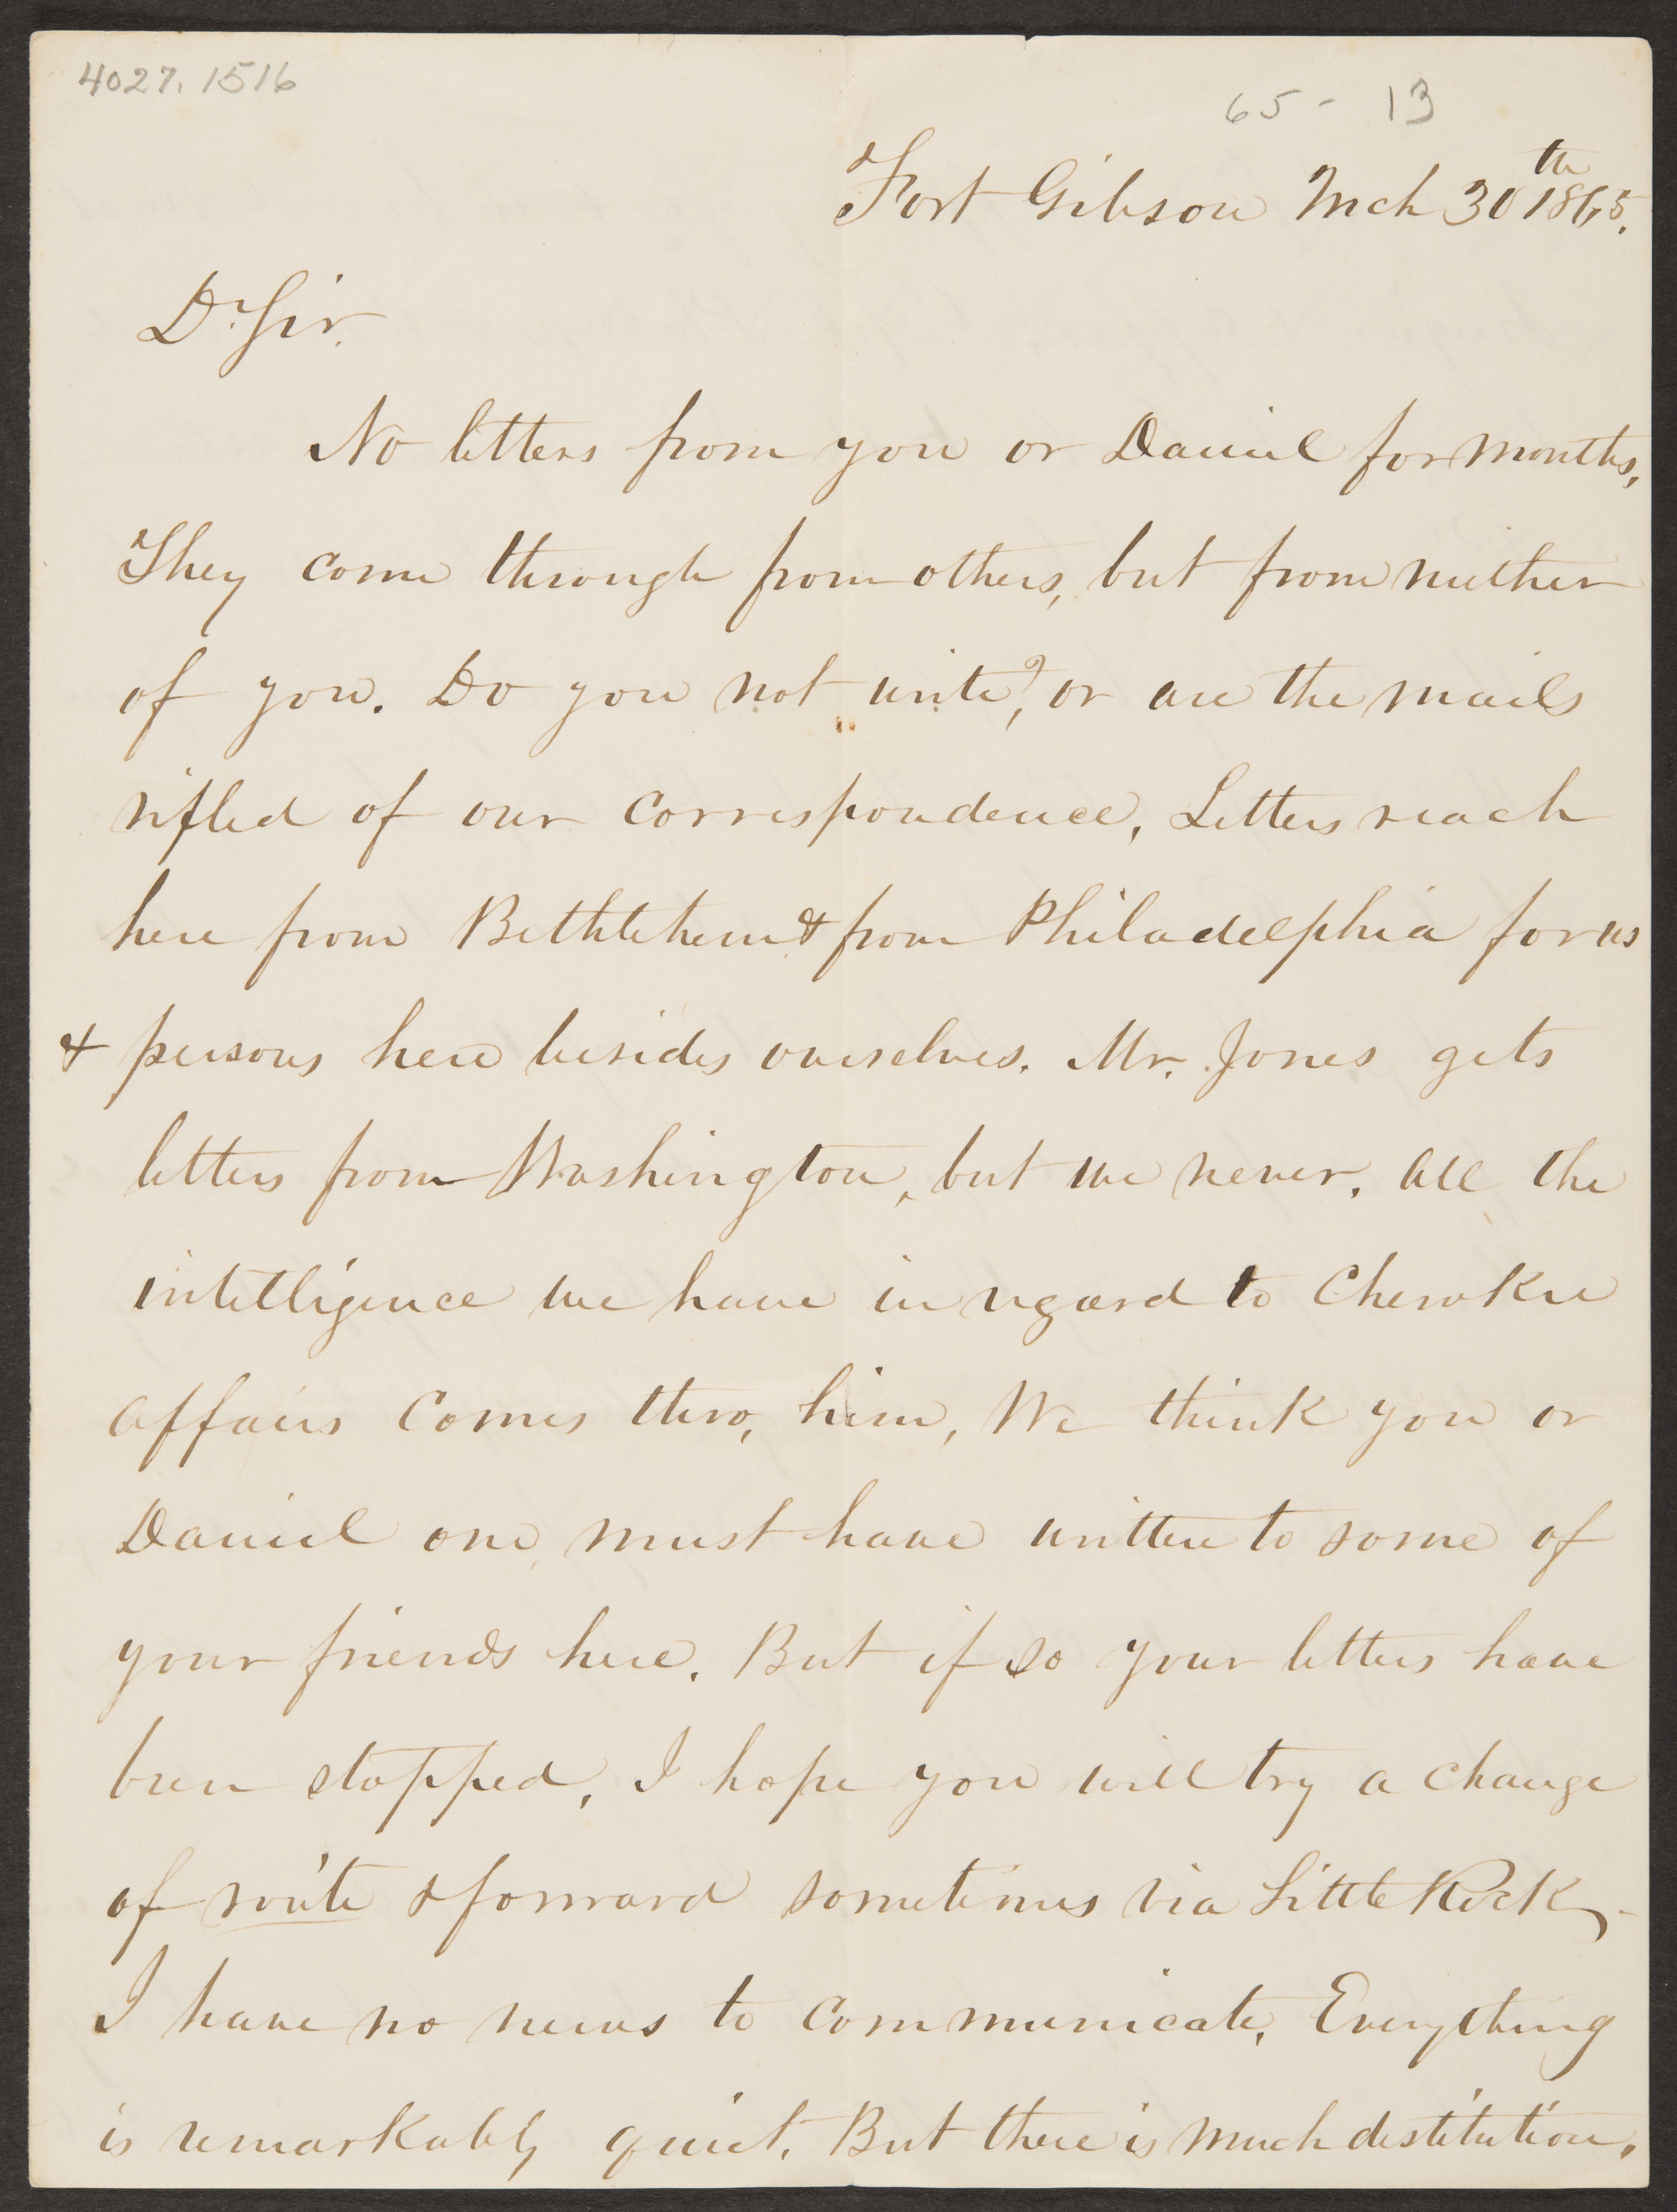 4027.1516
65 - 13
Fort Gibson Mch 30th 1865.
D. Sir.
No letters from you or Daniel for months,
They come through from others, but from neither
of you. Do you not write?, or are the mails
rifled of our correspondence, Letters reach
here from Bethlehem & from Philadelphia for us
& persons here besides ourselves. Mr. Jones gets
letters from Washington, but we never. All the
intelligence we have in regard to Cherokee
affairs comes thro, him, We think you or
Daniel one must have written to some of
your friends here. But if so your letters have
been stopped, I hope you will try a change
of route & forward sometimes via Little Rock,
I have no news to communicate, Everything
is remarkably quiet. But there is much destitution,